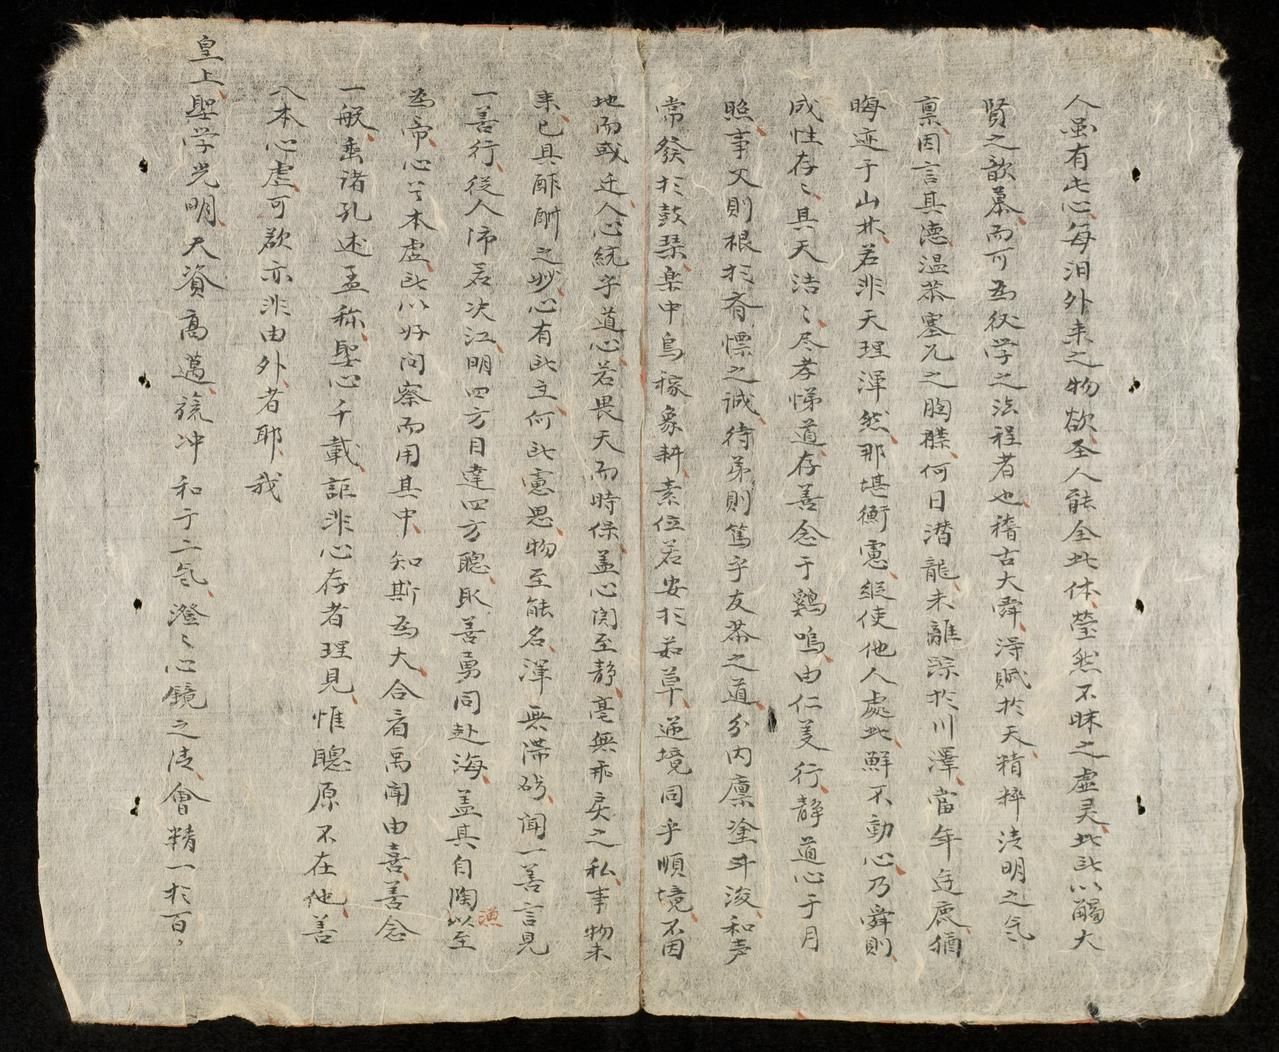 人虽有此心每汨外来之物欲圣人能全此体莹然不昧之虚灵此所以觸大
賢之歆慕而可為後学之法程者也稽古大舜得賦於天精粹清明之氣
禀因言其德温恭塞兀之胸襟何日潜龍未離深於川澤當年迄鹿猶
晦迹于山林若非天理渾然那堪衡慮縱使他人處此鮮不動心乃舜則
成性存〻具天洁〻尽孝悌道存善念于鷄鳴由仁义行静道心于月
照事父則根於齊慄之诚待弟則篤乎友恭之道分内廪塗井浚和声
常發於鼓琴楽中鳥稼象耕素位若安於茹草逆境同乎順境不因
地而或迁人心統乎道心若畏天而時保盖心関至静毫無乖戾之私事物未
来已具酧酢之妙心有所主何所慮思物至能名渾無滞矿闻一善言見
一善行從人沛若决江明四方目達四方聰取善勇同赴海盖其自陶漁以至
為帝心之本虚所以好问察而用其中知斯為大合看禹闻由喜善念
一般垂诸孔述孟称聖心千載詎非心存者理見惟聰原不在他善
入本心虚可欲亦非由外者耶我
皇上聖学光明天資高邁旒冲和于二气澄〻心鏡之清會精一於百〻